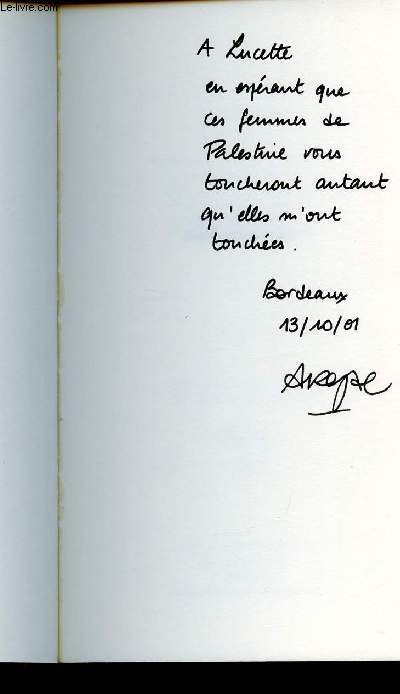 Le-livre.com
A Lucette
en espérant que
ces femmes de
Palestine vous
toucheront autant
qu'elles m'ont
touchées.
Bordeaux
13/10/01